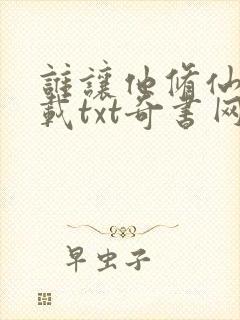 誰讓他脩仙
載txt奇書网
早虫子